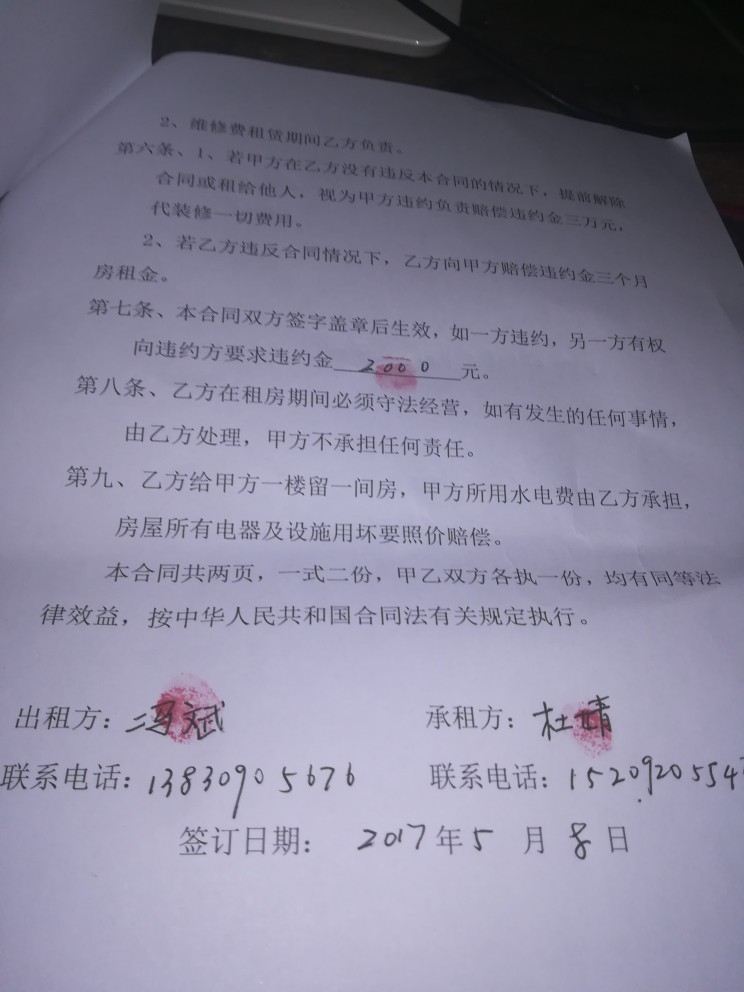 2、维修费租赁期间乙方负责。
第六条、1、若甲方在乙方没有违反本合同的情况下，提前解除
合同或租给他人，视为甲方违约负责赔偿违约金三万元，
代装修一切费用。
2、若乙方违反合同情况下，乙方向甲方赔偿违约金三个月
房租金。
第七条、本合同双方签字盖章后生效，如一方违约，另一方有权
向违约方要求违约金 2000 元。
第八条、乙方在租房期间必须守法经营，如有发生的任何事情，
由乙方处理，甲方不承担任何责任。
第九、乙方给甲方一楼留一间房，甲方所用水电费由乙方承担，
房屋所有电器及设施用坏要照价赔偿。
本合同共两页，一式二份，甲乙双方各执一份，均有同等法
律效益，按中华人民共和国合同法有关规定执行。
出租方：冯斌 承租方：杜婧
联系电话：13830905676 联系电话：1520920554
签订日期： 2017年5 月 8 日